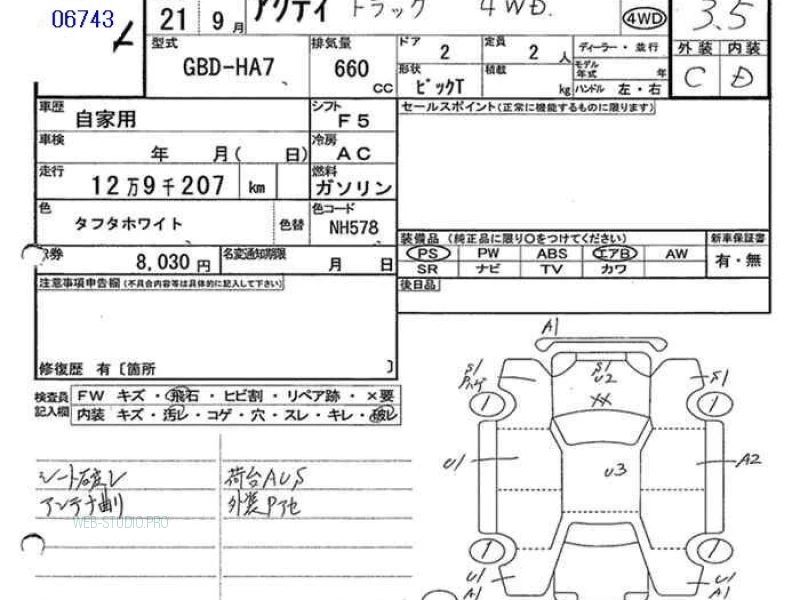 06743
21 9月 アクティ トラック 4WD. 4WD 3.5
型式 GBD-HA7 排気量 660 CC ドア 2 定員 2 人 ディーラー・並行 外装 内装
形状 ピックT 積載 kg モデル年式 年 ハンドル 左・右 C D
車歴 自家用 シフト F5 セールスポイント(正常に機能するものに限ります)
車検 年 月( 日) 冷房 AC
走行 12万9千207 km 燃料 ガソリン
色 タフタホワイト 色替 色コード NH578
装備品 (純正品に限り〇をつけてください) 新車保証書
券 8,030円 名変通知期限 月 日 PS PW ABS エアB AW 有・無
SR ナビ TV カワ
注意事項申告欄(不具合内容等は具体的に記入して下さい) 後日品
修復歴 有〔箇所 〕
検査員記入欄 FW キズ・飛石・ヒビ割・リペア跡・×要
内装 キズ・汚レ・コゲ・穴・スレ・キレ・破レ
シート破レ 荷台AUS
アンテナ曲り 外装P他
WEB-STUDIO.PRO
A1
S1 S1 U2 S1
XX
1 1
U1 U3 A2
1 1
U1 A1 U1 A1